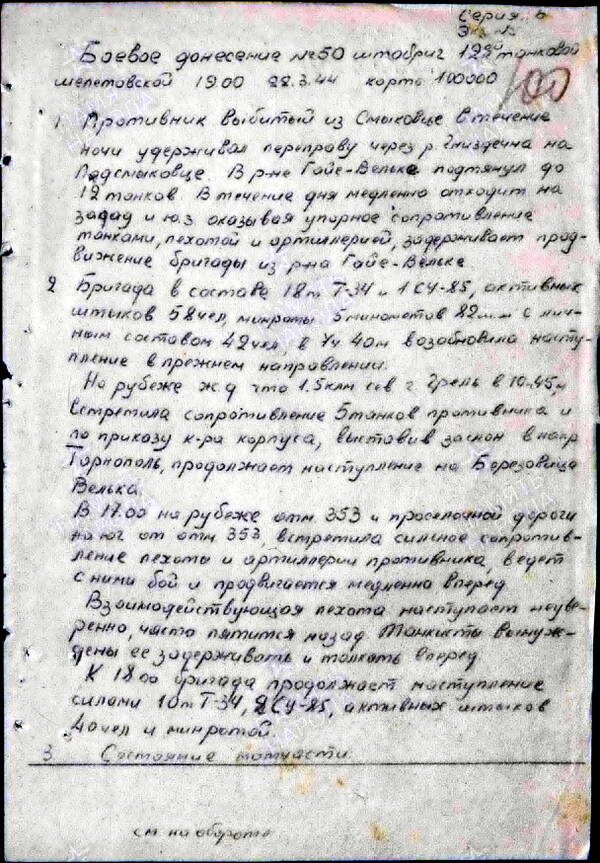 Серия Б
Экз. №
Боевое донесение №50 штабриг 129й танковой
шепетовской 19.00 22.3.44 карта 100000
1. Противник выбитый из Смыковце в течение
ночи удерживал переправу через р. Гниздечна на
Подсмыковце. В р-не Гайе-Вельке подтянул до
12 танков. В течение дня медленно отходит на
запад и ю.з. оказывая упорное сопротивление
танками, пехотой и артиллерией, задерживает прод-
вижение бригады из р-на Гайе-Вельке
2 Бригада в составе 18т Т-34 и 1 СУ-85, активных
штыков 58 чел, минроты 5 минометов 82 м.м с лич-
ным составом 42 чел, в 7ч 40м возобновила насту-
пление в прежнем направлении.
На рубеже ж.д что 1.5 клм сев г. в 10-45,
встретила сопротивление 5 танков противника и
по приказу к-ра корпуса, выставив заслон в напр
Тарнополь, продолжает наступление на Березовица
Велька.
В 17.00 на рубеже отм 353 и проселочной дороги
на юг от отм 353, встретила сильное сопротив-
ление пехоты и артиллерии противника, ведет
с ними бой и продвигается медленно вперед
Взаимодействующая пехота наступает неуве-
ренно, часто пятится назад Танкисты вынуж-
дены ее задерживать и толкать вперед.
К 18 00 бригада продолжает наступление
силами 10т Т-34, 2 СУ-85, активных штыков
40 чел и минротой.
3. Состояние матчасти
см на обороте